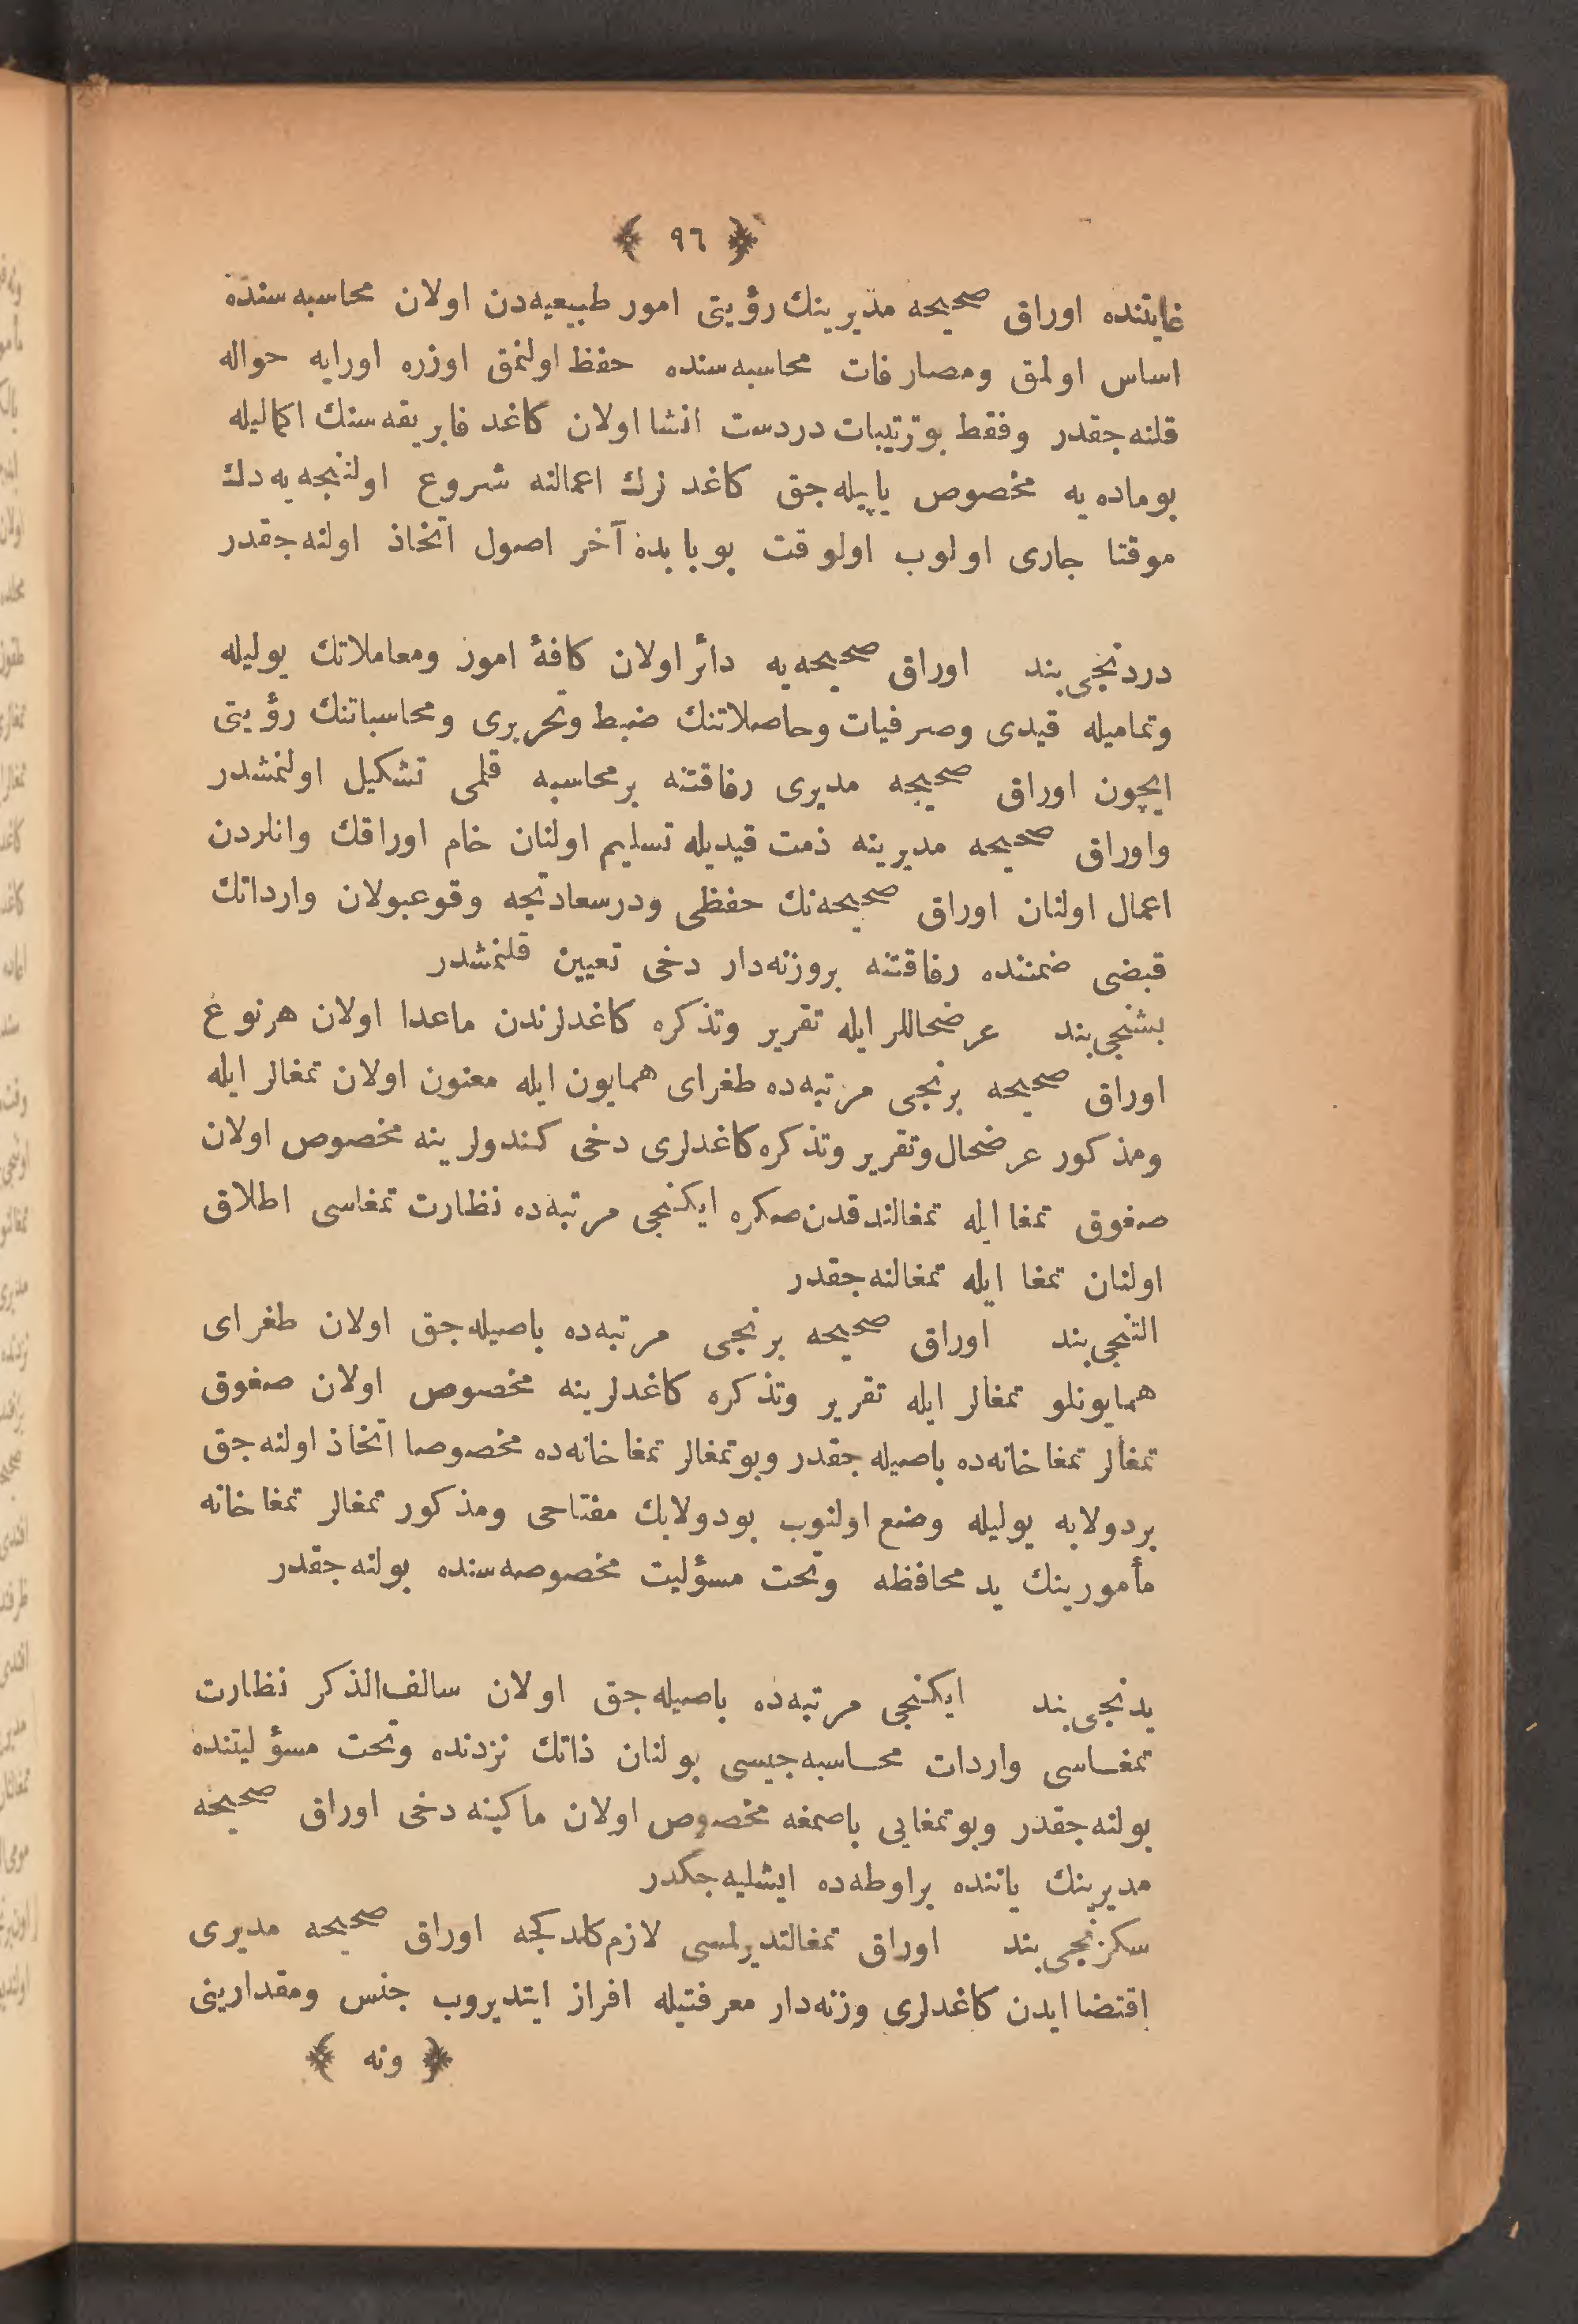 ﴿ ٩٦ ﴾
غایتنده اوراق صحیحه مدیرینك رؤیتی امور طبیعیه‌دن اولان محاسبه‌سنده
اساس اولمق ومصارفات محاسبه‌سنده حفظ اولنمق اوزره اورایه حواله
قلنه‌جقدر وفقط بوترتیبات دردست انشا اولان كاغد فابریقه‌سنك اكمالیله
بوماده‌یه مخصوص یاپیله‌جق كاغدلرك اعمالنه شروع اولنجه‌یه‌دك
موقتا جاری اولوب اولوقت بوبابده آخر اصول اتخاذ اولنه‌جقدر
دردنجی بند اوراق صحیحه‌یه دائر اولان كافۀ امور ومعاملاتك یولیله
وتمامیله قیدی وصرفیات وحاصلاتنك ضبط وتحریری ومحاسباتنك رؤیتی
ایچون اوراق صحیحه مدیری رفاقتنه برمحاسبه قلمی تشكیل اولنمشدر
واوراق صحیحه مدیرینه ذمت قیدیله تسلیم اولنان خام اوراقك وانلردن
اعمال اولنان اوراق صحیحه‌نك حفظی ودرسعادتجه وقوعبولان وارداتك
قبضی ضمننده رفاقتنه بروزنه‌دار دخی تعیین قلنمشدر
بشنجی بند عرضحاللر ایله تقریر وتذكره كاغدلرندن ماعدا اولان هرنوع
اوراق صحیحه برنجی مرتبه‌ده طغرای همایون ایله معنون اولان تمغالر ایله
ومذكور عرضحال وتقریر وتذكره كاغدلری دخی كندولرینه مخصوص اولان
صغوق تمغا ایله تمغالندقدن صكره ایكنجی مرتبه‌ده نظارت تمغاسی اطلاق
اولنان تمغا ایله تمغالنه‌جقدر
التنجی بند اوراق صحیحه برنجی مرتبه‌ده باصیله‌جق اولان طغرای
همایونلو تمغالر ایله تقریر وتذكره كاغدلرینه مخصوص اولان صغوق
تمغالر تمغاخانه‌ده باصیله‌جقدر وبوتمغالر تمغاخانه‌ده مخصوصا اتخاذ اولنه‌جق
بردولابه یولیله وضع اولنوب بودولابك مفتاحی ومذكور تمغالر تمغاخانه
مأمورینك ید محافظه وتحت مسؤلیت مخصوصه‌سنده بولنه‌جقدر
یدنجی بند ایكنجی مرتبه‌ده باصیله‌جق اولان سالف‌الذكر نظارت
تمغاسی واردات محاسبه‌جیسی بولنان ذاتك نزدنده وتحت مسؤلیتنده
بولنه‌جقدر وبوتمغایی باصمغه مخصوص اولان ماكینه دخی اوراق صحیحه
مدیرینك یاننده براوطه‌ده ایشلیه‌جكدر
سكزنجی بند اوراق تمغالتدیرلمسی لازم كلدكجه اوراق صحیحه مدیری
اقتضا ایدن كاغدلری وزنه‌دار معرفتیله افراز ایتدیروب جنس ومقدارینی
﴿ ونه ﴾